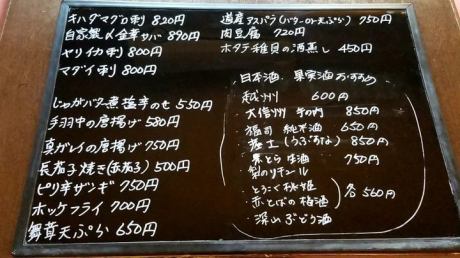 キハダマグロ刺 820円
自家製〆金華サバ 890円
ヤリイカ刺 800円
マダイ刺 800円
じゃがバター煮塩辛のせ 550円
手羽中の唐揚げ 580円
真ガレイの唐揚げ 750円
長茄子焼き(赤茄子) 500円
ピリ辛ザンギ 750円
ホッケフライ 700円
舞茸天ぷら 650円
道産アスパラ(バターor天ぷら) 750円
肉豆腐 720円
ホタテ稚貝の酒蒸し 450円
日本酒 果実酒おすすめ
越州 600円
大信州 850円
福司 純米酒 650円
富士(うぶすな) 850円
生酒 750円
梨のリキュール
・とろこく秋姫
・赤とばの梅酒
・深山ぶどう酒
各560円